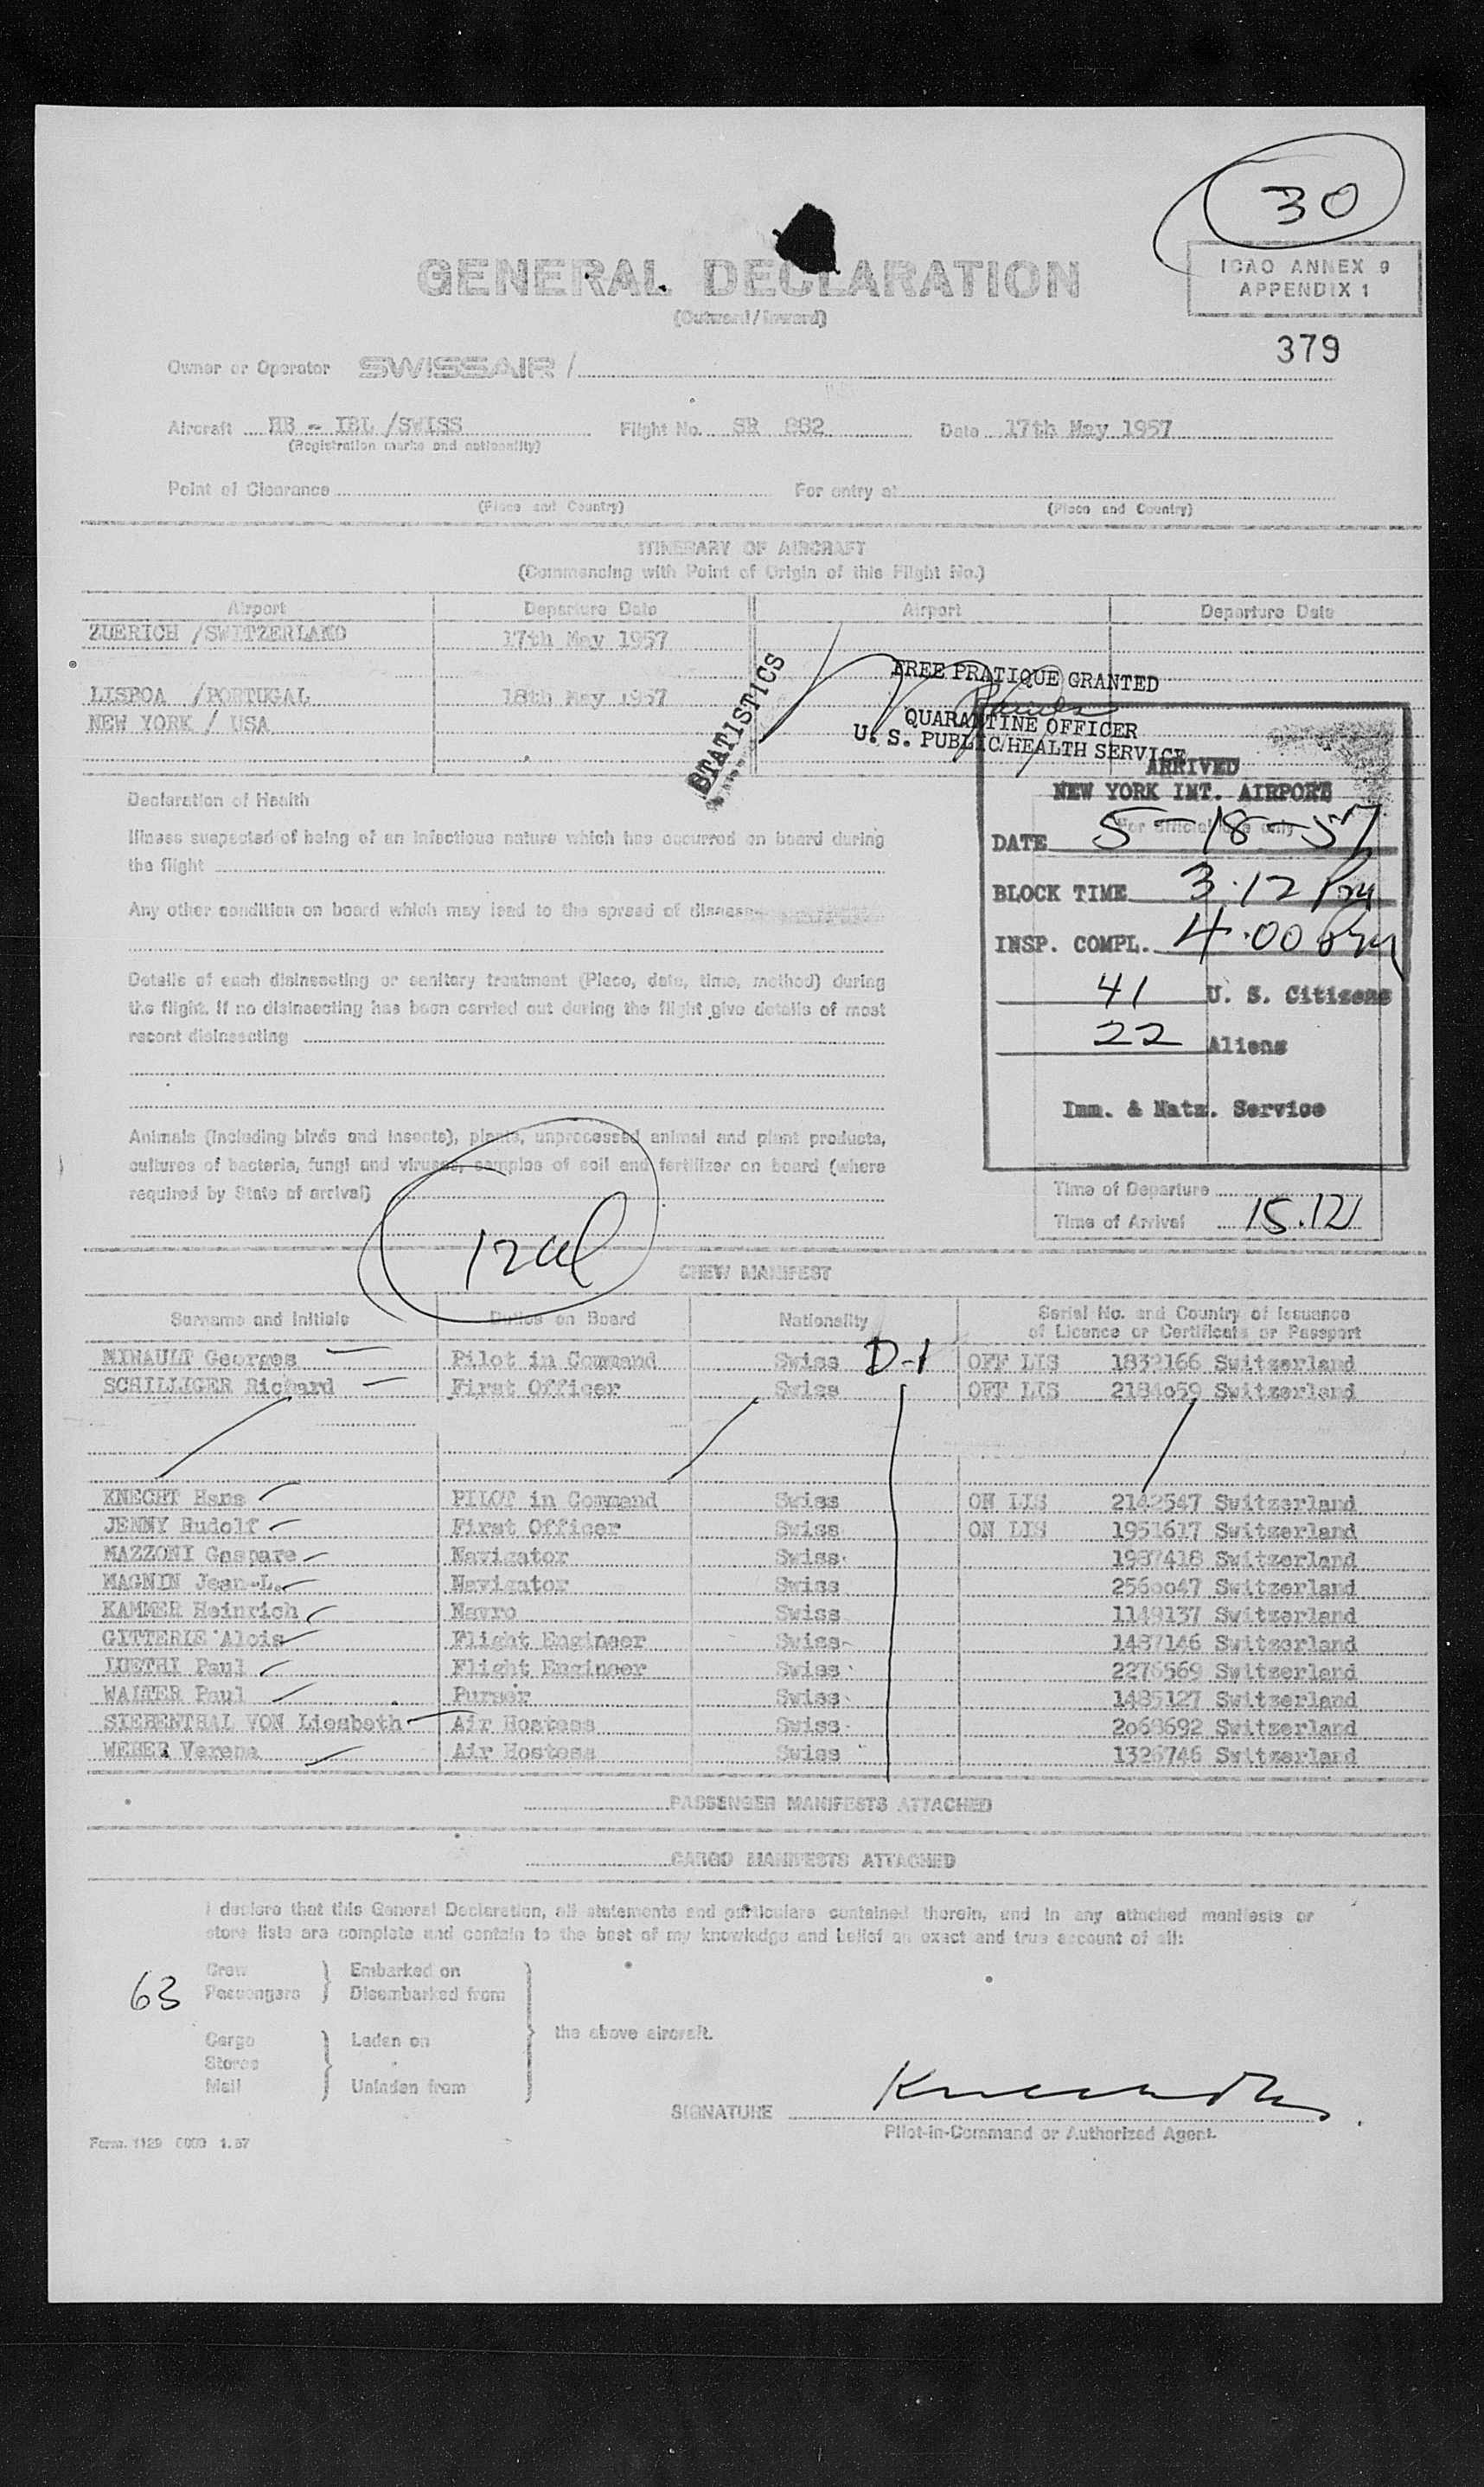 30
GENERAL DECLARATION
(Outward/Inward)
ICAO ANNEX 9
APPENDIX 1
379
Owner or Operator SWISSAIR /
Aircraft HB - IBL /SWISS Flight No. SR 882 Date 17th May 1957
(Registration marks and nationality)
Point of Clearance For entry at
(Place and Country) (Place and Country)
ITINERARY OF AIRCRAFT
(Commencing with Point of Origin of this Flight No.)
Airport Departure Date Airport Departure Date
ZUERICH /SWITZERLAND 17th May 1957
LISBOA /PORTUGAL 18th May 1957
NEW YORK / USA
STATISTICS
FREE PRATIQUE GRANTED
QUARANTINE OFFICER
U. S. PUBLIC HEALTH SERVICE
ARRIVED
NEW YORK INT. AIRPORT
For official use only
DATE 5-18-57
BLOCK TIME 3.12 Pm
INSP. COMPL. 4.00 Pm
41 U. S. Citizens
22 Aliens
Imm. & Natz. Service
Declaration of Health
Illness suspected of being of an infectious nature which has occurred on board during
the flight
Any other condition on board which may lead to the spread of disease
Details of each disinsecting or sanitary treatment (Place, date, time, method) during
the flight. If no disinsecting has been carried out during the flight give details of most
recent disinsecting
Animals (including birds and insects), plants, unprocessed animal and plant products,
cultures of bacteria, fungi and viruses, samples of soil and fertilizer on board (where
required by State of arrival)
Time of Departure
Time of Arrival 15.12
CREW MANIFEST
Surname and Initials Duties on Board Nationality Serial No. and Country of Issuance
of Licence or Certificate or Passport
MINAULT Georges Pilot in Command Swiss D-1 OFF LIS 1832166 Switzerland
SCHILLIGER Richard First Officer Swiss OFF LIS 2184059 Switzerland
KNECHT Hans PILOT in Command Swiss ON LIS 2142547 Switzerland
JENNY Rudolf First Officer Swiss ON LIS 1951617 Switzerland
MAZZONI Gaspare Navigator Swiss 1987418 Switzerland
MAGNIN Jean-L. Navigator Swiss 2560047 Switzerland
KAMMER Heinrich Navro Swiss 1149137 Switzerland
GITTERLE Alois Flight Engineer Swiss 1487146 Switzerland
LUETHI Paul Flight Engineer Swiss 2276569 Switzerland
WALTER Paul Purser Swiss 1485127 Switzerland
SIEBENTHAL VON Liesbeth Air Hostess Swiss 2068692 Switzerland
WEBER Verena Air Hostess Swiss 1326746 Switzerland
PASSENGER MANIFESTS ATTACHED
CARGO MANIFESTS ATTACHED
I declare that this General Declaration, all statements and particulars contained therein, and in any attached manifests or
store lists are complete and contain to the best of my knowledge and belief an exact and true account of all:
Crew Embarked on
63 Passengers Disembarked from
the above aircraft.
Cargo Laden on
Stores
Mail Unladen from
SIGNATURE
Pilot-in-Command or Authorized Agent.
Form. 1129 6000 1.57